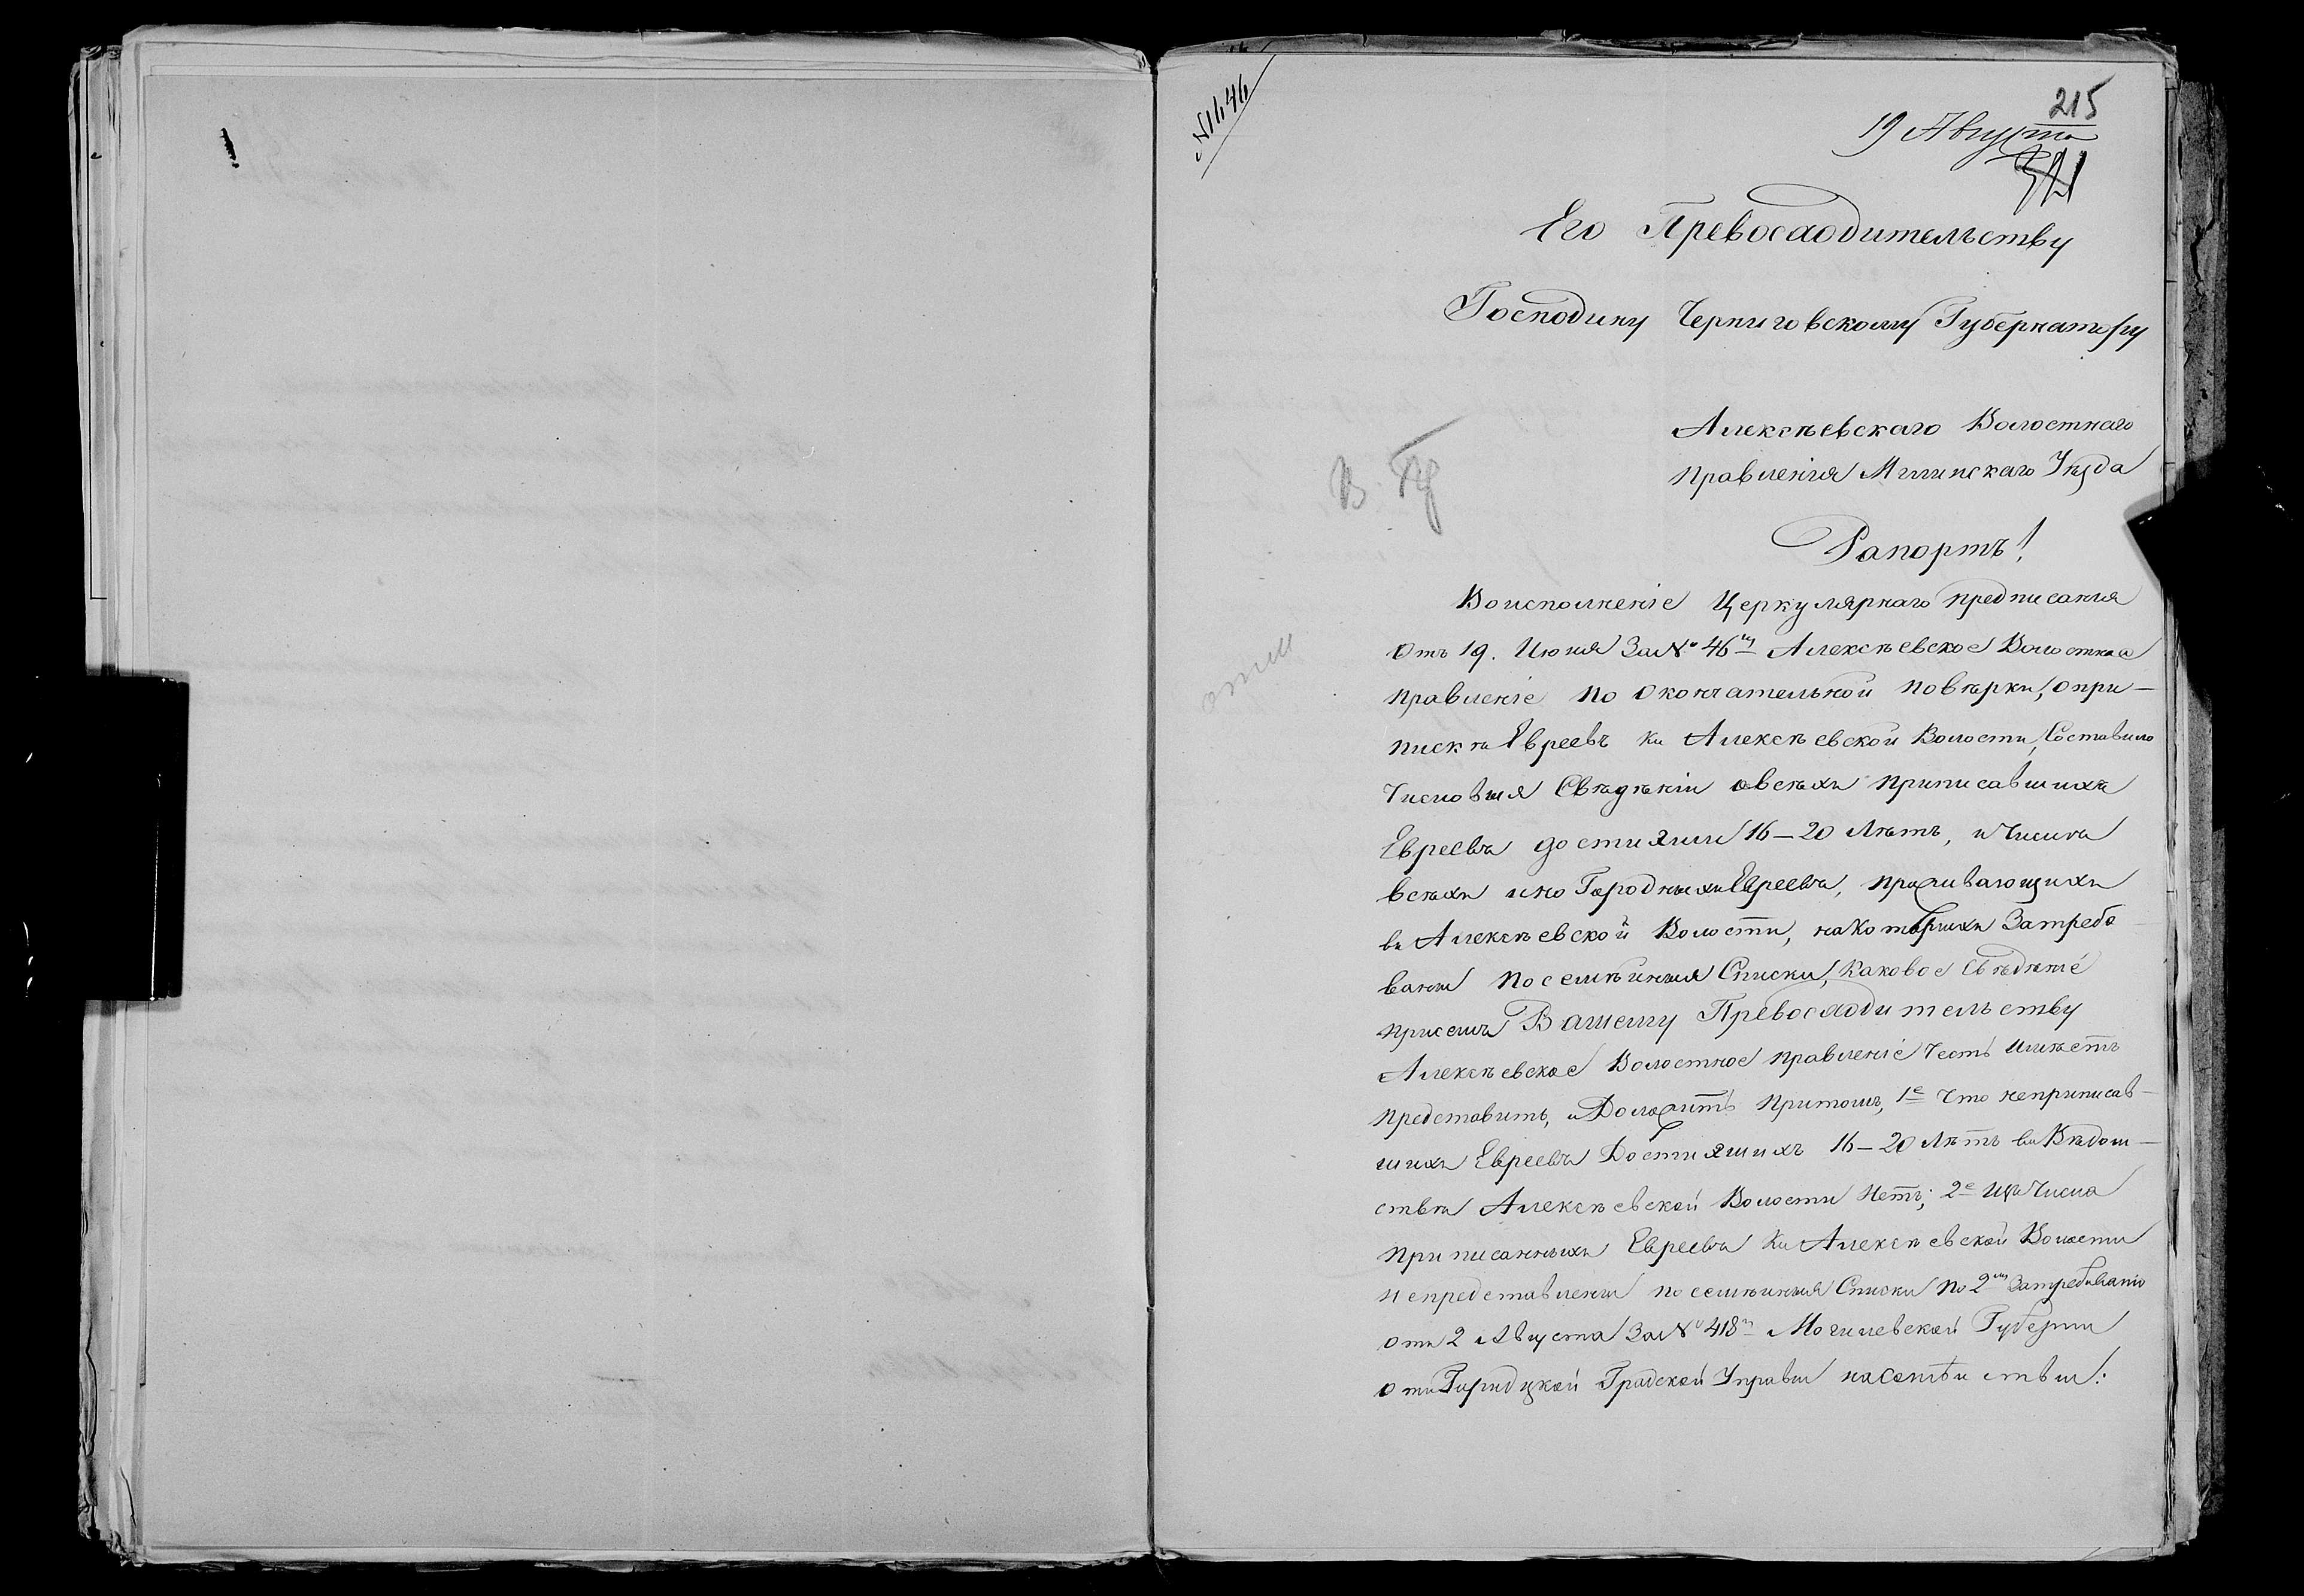 №1646
215
19 Августа
Его Превосходительству
Господину Черниговскому Губернатору
Алексѣевскаго Волостнаго
Правленія Мглинскаго Уѣзда
В. Пр
Рапортъ!
Воисполненіе Церкулярнаго предписанія
Отъ 19. Июня За№ 46м Алексѣевское Волостное
правленіе по Окончательной повѣрки, опри–
пискѣ Евреевъ къ Алексѣевской Волости, Составило
Числовыя Свѣдѣніи овсѣхъ приписавшихъ
Евреевъ достигши 16–20 Лѣтъ, и Числѣ
всѣхъ ино Городныхъ Евреевъ, проживающихъ
въ Алексѣевской Волости, накоторыхъ Затребо
ваны посемѣйныя Списки, Каковое Свѣдѣніе
присемъ Вашему Превосходительству
Алексѣевское Волостное правленіе Честь имѣетъ
представить, и Доложить Притомъ, 1е Что неприписав–
шихъ Евреевъ Достигшихъ 16–20 Лѣтъ въ Вѣдом–
ствѣ Алексѣевской Волости Нетъ; 2е Изъ Числа
приписанныхъ Евреевъ Къ Алексѣевской Волости
Непредставлены посемѣйныя Списки по 2му Затребованію
отъ 2 Августа За№ 418м Могилевской Губерніи
отъ Городцкой Градской Управы